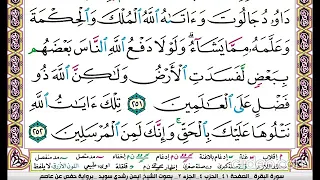 دَاوُۥدُ جَالُوتَ وَءَاتَىٰهُ ٱللَّهُ ٱلْمُلْكَ وَٱلْحِكْمَةَ
وَعَلَّمَهُۥ مِمَّا يَشَآءُ ۗ وَلَوْلَا دَفْعُ ٱللَّهِ ٱلنَّاسَ بَعْضَهُم
بِبَعْضٍ لَّفَسَدَتِ ٱلْأَرْضُ وَلَٰكِنَّ ٱللَّهَ ذُو
فَضْلٍ عَلَى ٱلْعَٰلَمِينَ ٢٥١ تِلْكَ ءَايَٰتُ ٱللَّهِ
نَتْلُوهَا عَلَيْكَ بِٱلْحَقِّ ۚ وَإِنَّكَ لَمِنَ ٱلْمُرْسَلِينَ ٢٥٢
سورة البقرة الصفحة ٤١ الحزب ٤ الجزء ٢ بصوت الشيخ أيمن رشدي سويد برواية حفص عن عاصم